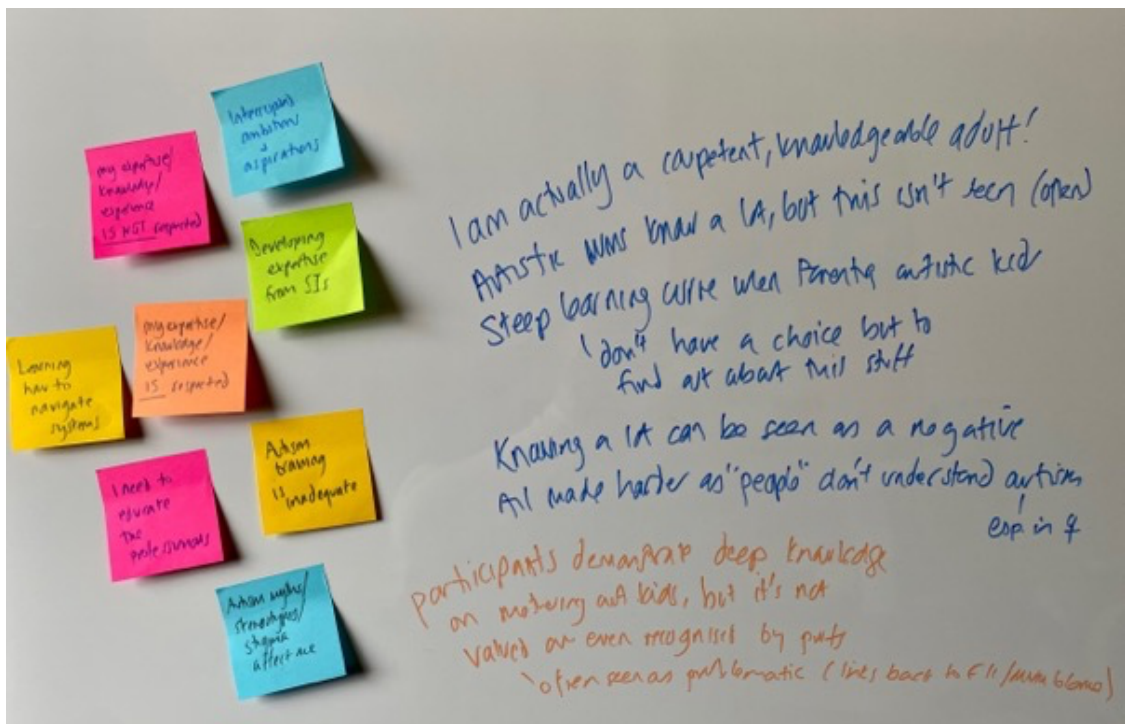 Interrupted
ambitions
+
aspirations
my expertise/
knowledge/
experience
IS NOT respected
Developing
expertise
from SIs
my expertise/
knowledge/
experience
IS respected
Learning
how to
navigate
systems
Autism
training
is inadequate
I need to
educate
the
professionals
Autism myths/
stereotypes/
stigma
affect me
I am actually a competent, knowledgeable adult!
Autistic mums know a lot, but this isn't seen (often)
Steep learning curve when Parenting autistic kid
don't have a choice but to
find out about this stuff
Knowing a lot can be seen as a negative
All made harder as "people" don't understand autism
esp in ♀
participants demonstrate deep knowledge
on mothering aut kids, but it's not
valued or even recognised by profs
often seen as problematic (links back to FII/mum blame)